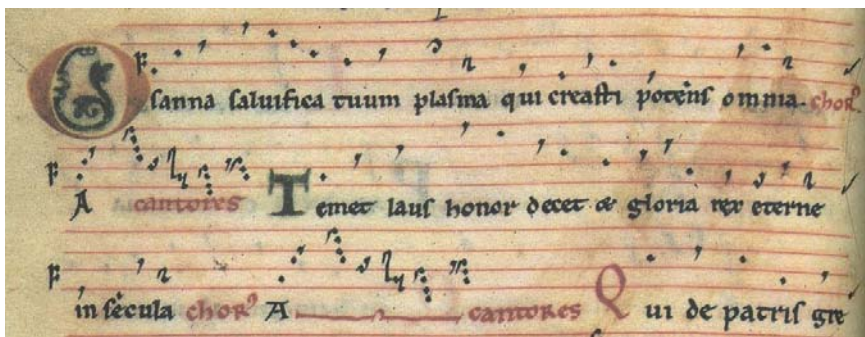 Osanna saluifica tuum plasma qui creasti potens omnia. chorꝰ
A cantores Temet laus honor decet & gloria rex eterne
in secula chorꝰ A cantores Qui de patris gre